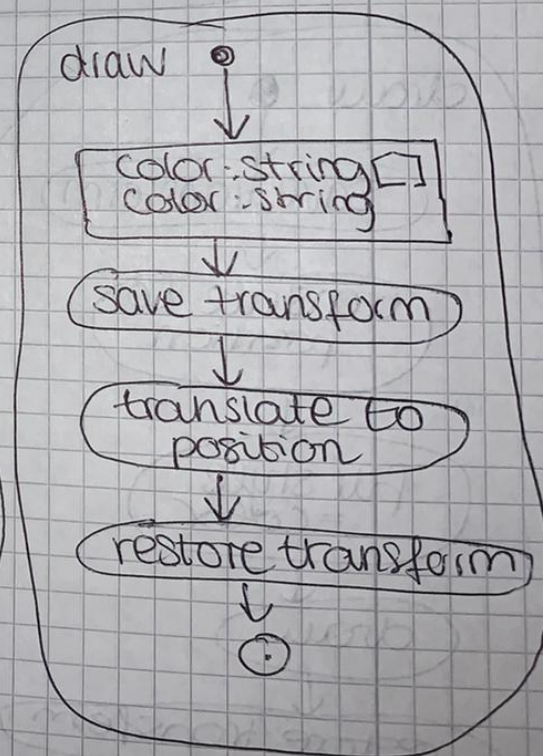 draw
color:string[]
color:string
save transform
translate to
position
restore transform